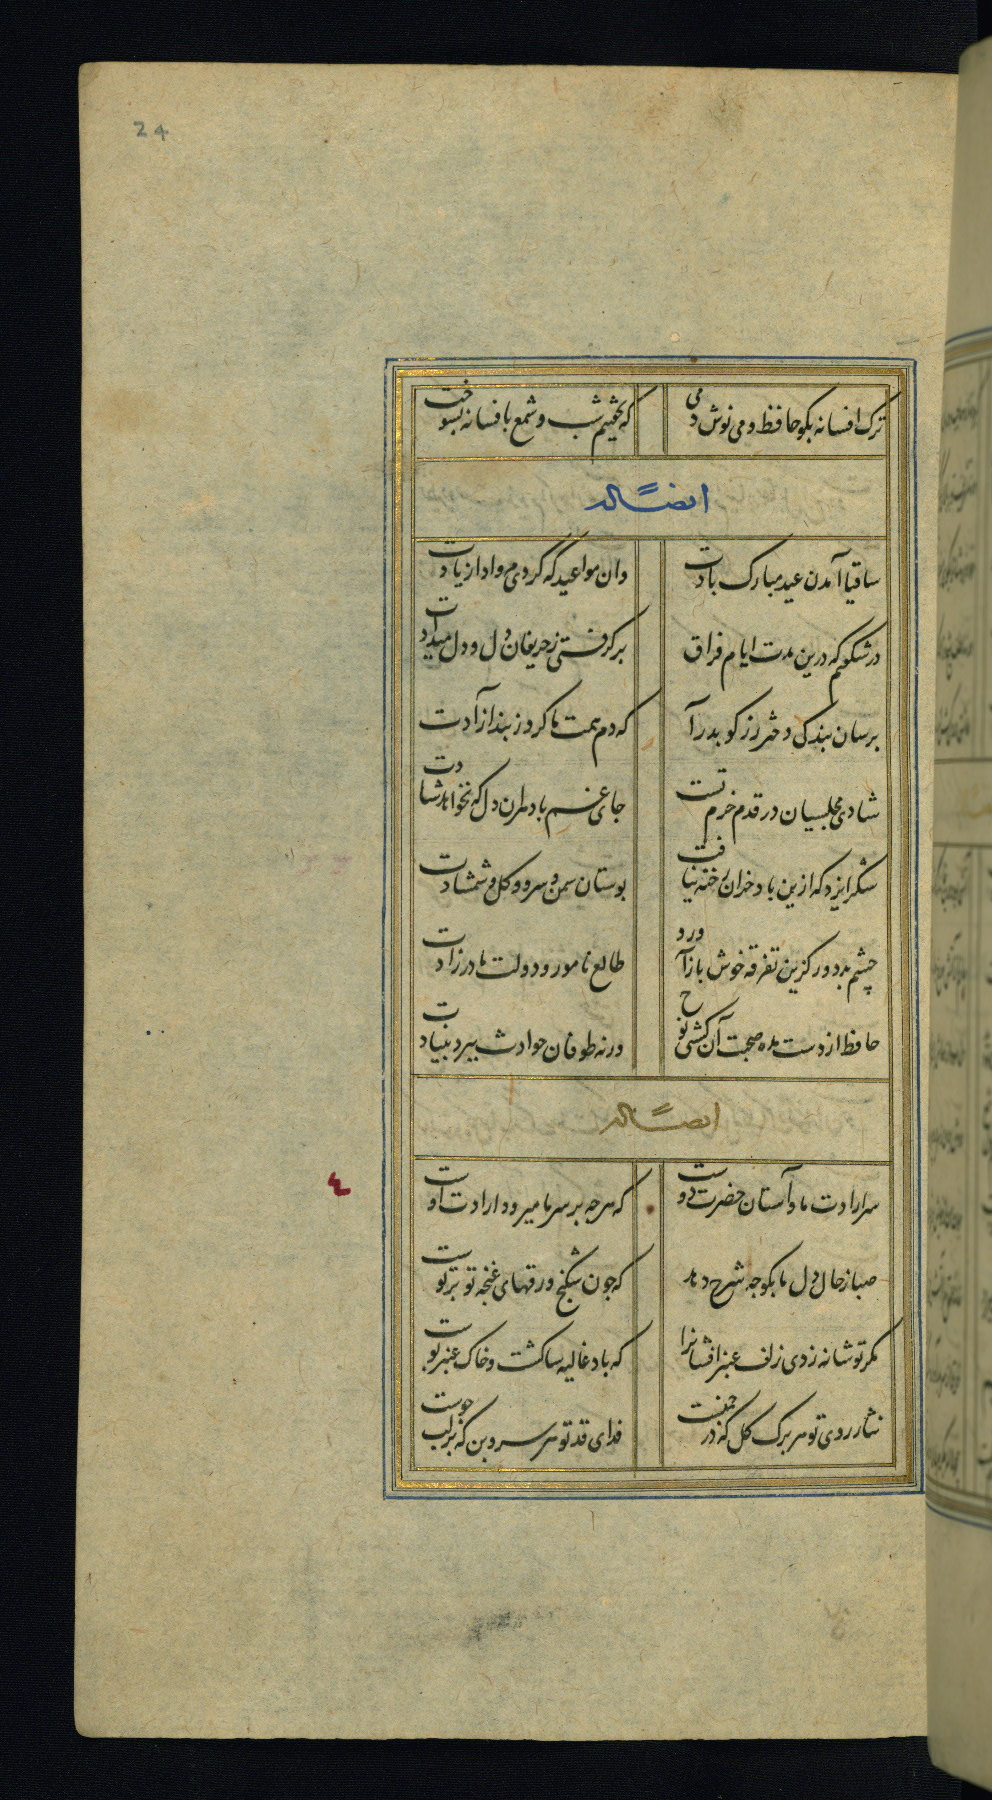 24
ترک افسانه بکو حافظ و می نوش دمی
که نخفتیم شب و شمع بافسانه بسوخت
ایضاً له
ساقیا آمدن عید مبارک بادت
وان مواعید که کردی مرواد از یادت
در شکفتم که درین مدت ایام فراق
برکرفتی ز حریفان دل و دل میدادت
برسان بندکی دختر رز کو بدر آ
که دم همت ما کرد ز بند آزادت
شادی مجلسیان در قدم خرم تست
جای غم باد مران دل که نخواهد شادت
شکر ایزد که ازین باد خزان رخنه نیافت
بوستان سمن و سرو و کل و شمشادت
چشم بد دور کزین تفرقه خوش باز آورد
طالع نامور و دولت مادرزادت
حافظ از دست مده صحبت آن کشتی نوح
ورنه طوفان حوادث ببرد بنیادت
ایضاً له
سر ارادت ما و آستان حضرت دوست
که هرجه بر سر ما میرود ارادت اوست
صبا ز حال دل ما بکو جه شرح دهد
که جون شکنج ورقهای غنجه تو بر توست
مکر تو شانه زدی زلف عنبرافشانرا
که باد غالیه ساکشت و خاک عنبر بوست
نثار روی تو هر برک کل که در چمنست
فدای قد تو هر سرو بن که بر لب جوست